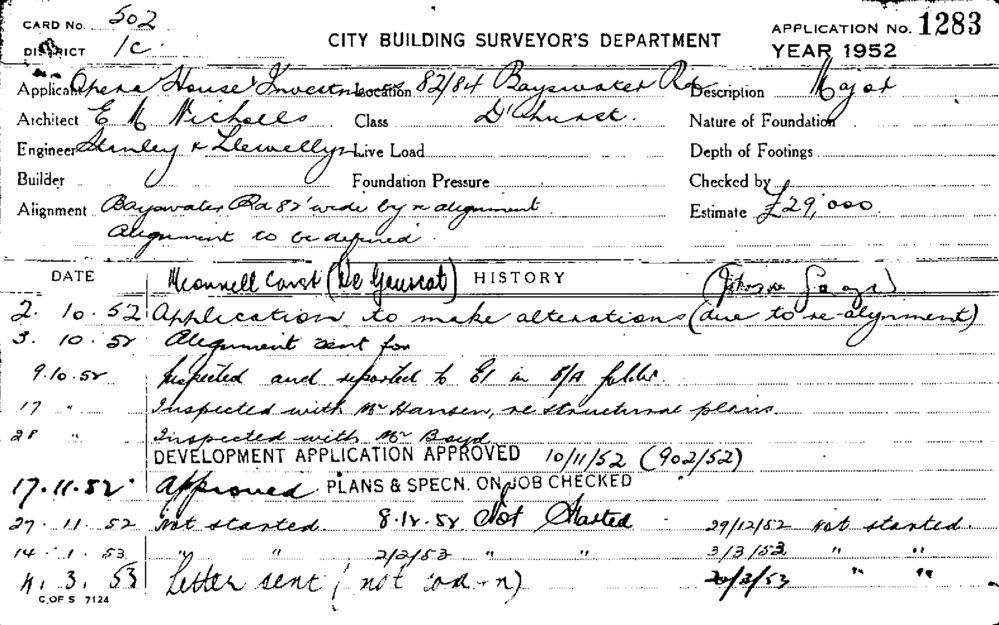 CARD No. 502
DISTRICT 1C
CITY BUILDING SURVEYOR'S DEPARTMENT
APPLICATION No. 1283
YEAR 1952
Applicant Opera House Investments Location 82/84 Bayswater Rd Description Major
Architect E M Nicholls Class D'hurst. Nature of Foundation
Engineer Stanley & Llewellyn Live Load Depth of Footings
Builder Foundation Pressure Checked by
Alignment Bayswater Rd 82' wide by re alignment. Estimate £29,000.
Alignment to be defined.
DATE HISTORY
2. 10. 52 Application to make alterations (due to re-alynment)
3. 10. 52 Alignment sent for
9.10.52 Inspected and reported to E1 in B/A public.
17 " Inspected with Mr Hansen, re structural plans.
28 " Inspected with Mr Boyd
DEVELOPMENT APPLICATION APPROVED 10/11/52 (902/52)
17.11.52 Approved PLANS & SPECN. ON JOB CHECKED
27. 11. 52 Not started. 8.12.52 Not Started 29/12/52 Not started.
14. 1. 53 " " 2/2/53 " " 3/3/53 " "
11. 3. 53 Letter sent (not 20/3/53 " "
C. OF S 7124